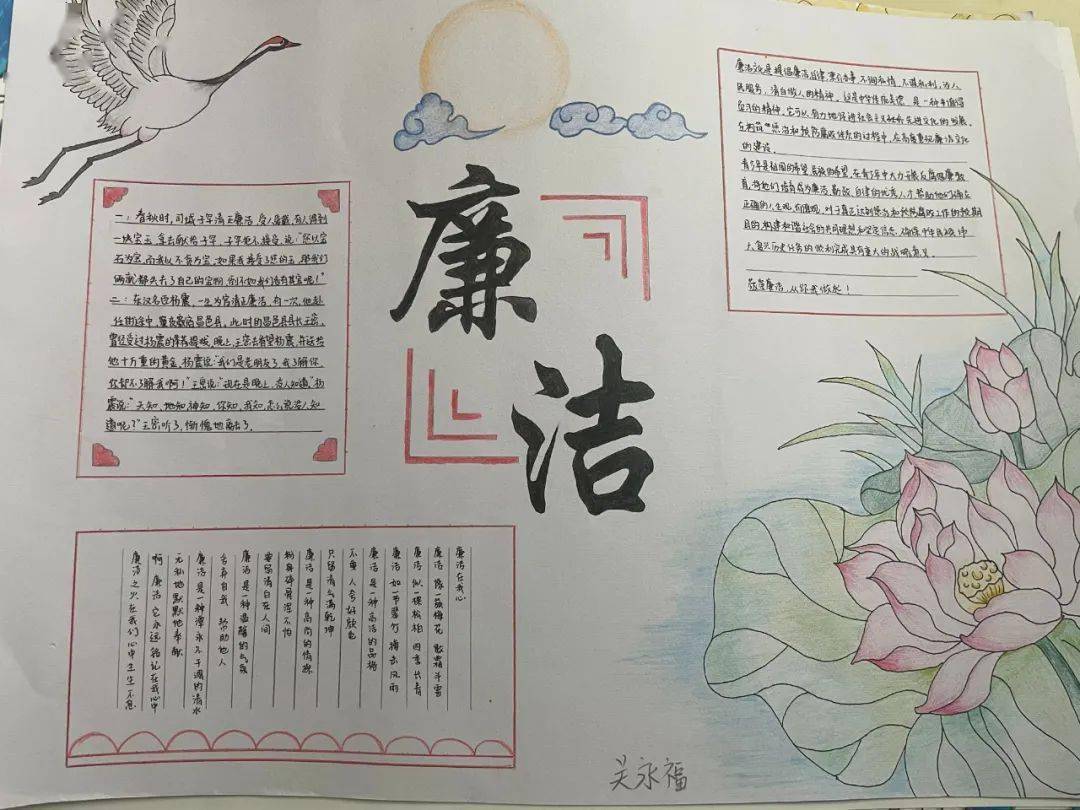 廉
洁
一：春秋时，司城子罕清正廉洁，受人爱戴，有人得到
一块宝玉，拿去献给子罕，子罕拒不接受，说："您以宝
石为宝，而我以不贪为宝，如果我接受了您的玉，那我们
俩就都失去了自己的宝物，倒不如我们各有其宝呢！"
二：东汉名臣杨震，一生为官清正廉洁，有一次，他赴
任街途中，夜宿昌邑县，此时的昌邑县县长王密，
曾经受过杨震的提拔，晚上，王密去看望杨震，并送给
他十万重的黄金，杨震说："我们是老朋友了，我了解你
你却不了解我啊！"王密说："现在是晚上，没人知道"杨
震说："天知，地知神知，你知，我知，怎么说没人知
道呢？"王密听了，惭愧地离去了。
廉洁文化是提倡廉洁自律，秉公办事，不徇私情，不谋私利，为人
民服务，清白做人的精神，这是中华传统美德，是一种丰富得
学习的精神，它可以有力地促进社会主义社会先进文化的发展，
在构筑惩治和预防腐败体系的过程中，应高度重视廉洁文化
的建设。
青少年是祖国的希望，民族的希望，在青少年中大力开展反腐倡廉教
育，将他们培育成为廉洁、勤政、自律的优秀人才，帮助他们确立
正确的人生观、价值观，对于真正达到惩治和预防腐败工作的预期
目的，构建和谐社会的共同理想和坚定信念，确保中华民族伟
大复兴历史任务的胜利完成具有重大的战略意义。
崇尚廉洁，从你我做起！
廉洁在我心
廉洁 像一颗梅花 散霜斗雪
廉洁 似一棵松柏 四季长青
廉洁 如一节翠竹 挡击风雨
廉洁 是一种高洁的品格
不要人夸好颜色
只留清气满乾坤
廉洁 是一种高尚的情操
粉身碎骨浑不怕
要留清白在人间
廉洁是一种温馨的气氛
舍弃自我 帮助他人
廉洁是一种潭永不干涸的清水
无私地默默地奉献
啊 廉洁 它永远铭记在我心中
廉洁之火在我们心中生生不息
吴永福